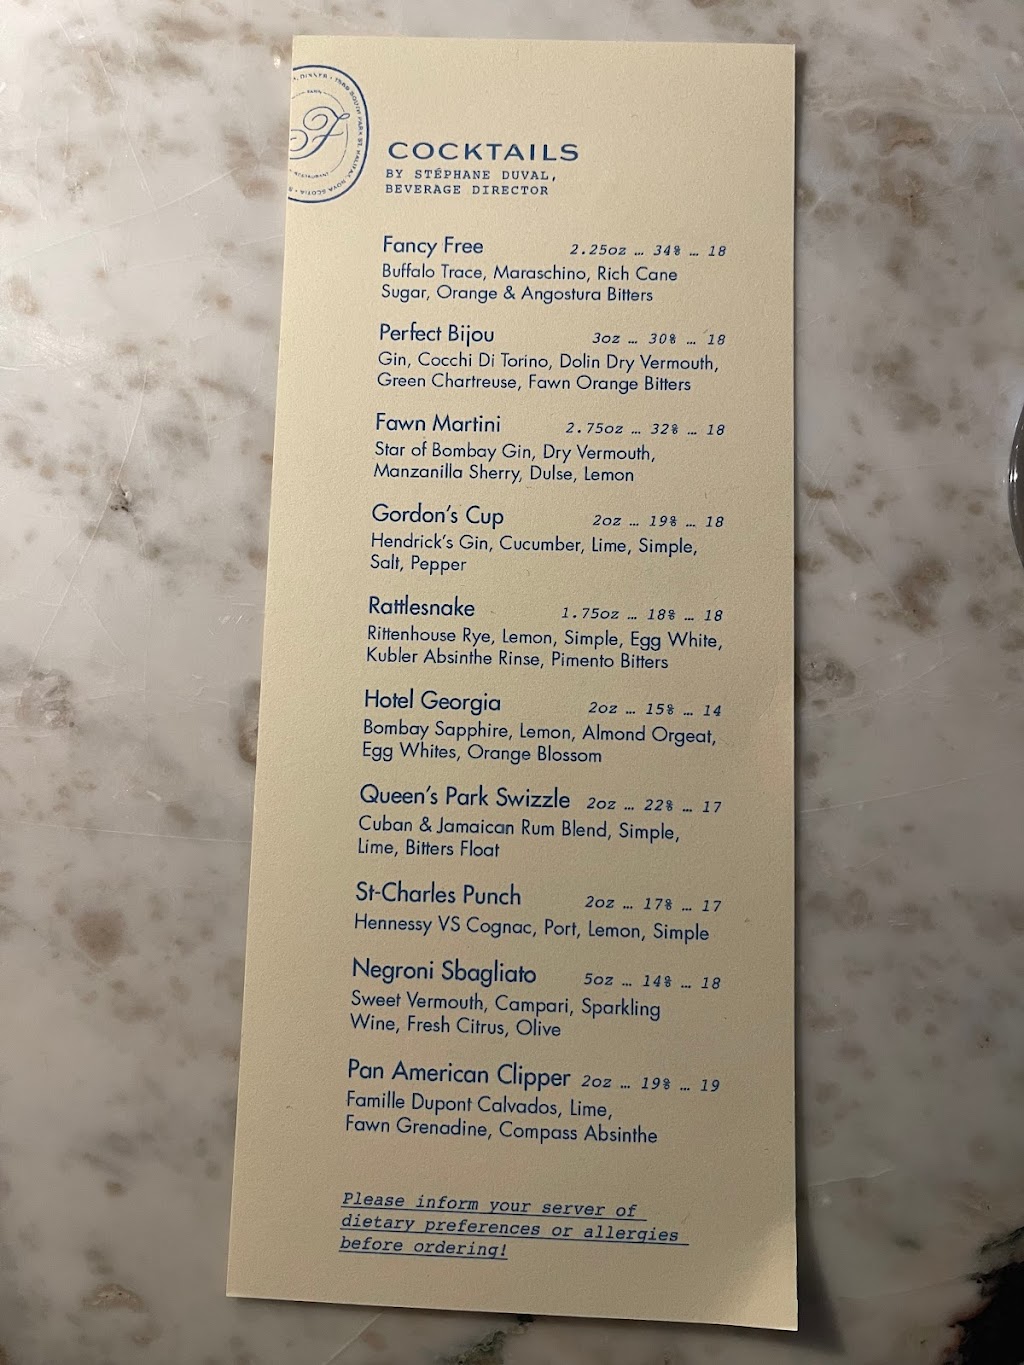 DINNER • 1569 SOUTH PARK ST. HALIFAX, NOVA SCOTIA •
FAWN
F
RESTAURANT
COCKTAILS
BY STÉPHANE DUVAL,
BEVERAGE DIRECTOR
Fancy Free 2.25oz … 34% … 18
Buffalo Trace, Maraschino, Rich Cane
Sugar, Orange & Angostura Bitters
Perfect Bijou 3oz … 30% … 18
Gin, Cocchi Di Torino, Dolin Dry Vermouth,
Green Chartreuse, Fawn Orange Bitters
Fawn Martini 2.75oz … 32% … 18
Star of Bombay Gin, Dry Vermouth,
Manzanilla Sherry, Dulse, Lemon
Gordon's Cup 2oz … 19% … 18
Hendrick's Gin, Cucumber, Lime, Simple,
Salt, Pepper
Rattlesnake 1.75oz … 18% … 18
Rittenhouse Rye, Lemon, Simple, Egg White,
Kubler Absinthe Rinse, Pimento Bitters
Hotel Georgia 2oz … 15% … 14
Bombay Sapphire, Lemon, Almond Orgeat,
Egg Whites, Orange Blossom
Queen's Park Swizzle 2oz … 22% … 17
Cuban & Jamaican Rum Blend, Simple,
Lime, Bitters Float
St-Charles Punch 2oz … 17% … 17
Hennessy VS Cognac, Port, Lemon, Simple
Negroni Sbagliato 5oz … 14% … 18
Sweet Vermouth, Campari, Sparkling
Wine, Fresh Citrus, Olive
Pan American Clipper 2oz … 19% … 19
Famille Dupont Calvados, Lime,
Fawn Grenadine, Compass Absinthe
Please inform your server of
dietary preferences or allergies
before ordering!